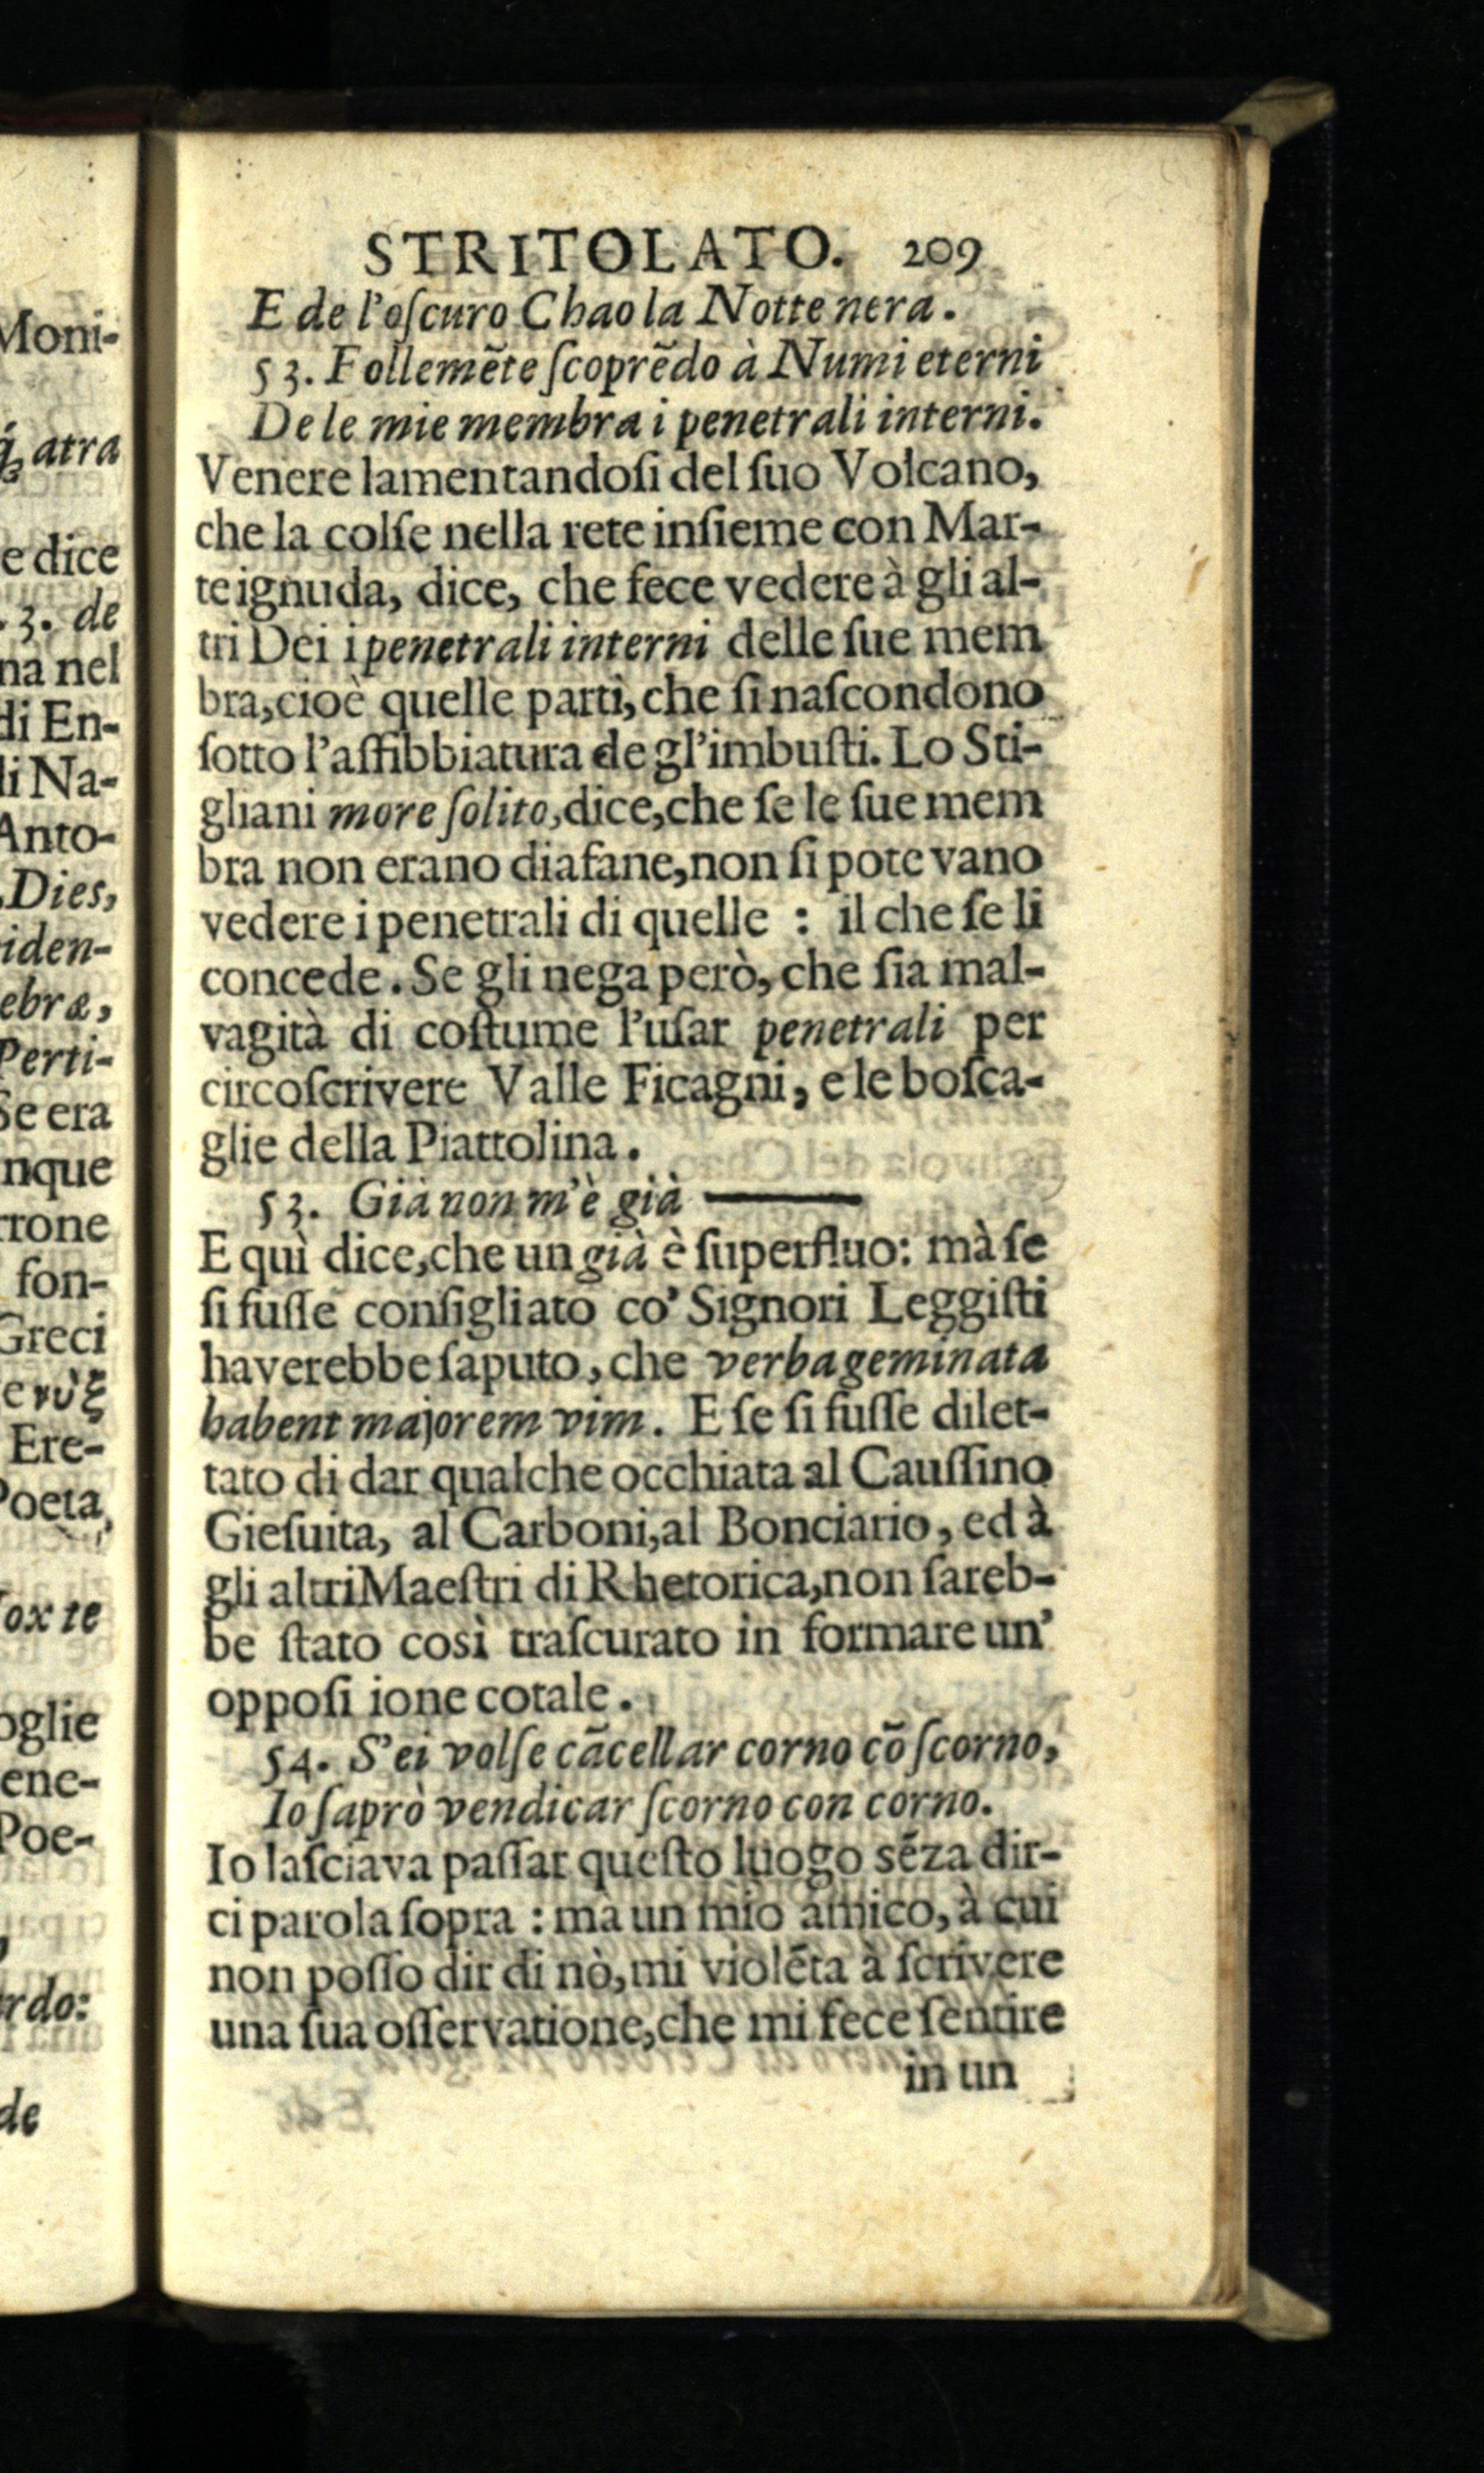 Moni-
atra
e dice
. 3. de
na nel
di En-
li Na-
Anto-
Dies,
iden-
ebræ,
Perti-
Se era
nque
rrone
fon-
Greci
e νὺξ
Ere-
Poeta,
ox te
oglie
ene-
Poe-
rdo:
de
STRITOLATO. 209
E de l'oſcuro Chao la Notte nera.
53. Follemẽte ſcoprẽdo à Numi eterni
De le mie membra i penetrali interni.
Venere lamentandoſi del ſuo Volcano,
che la colſe nella rete inſieme con Mar-
te ignuda, dice, che fece vedere à gli al-
tri Dei i penetrali interni delle ſue mem
bra, cioè quelle parti, che ſi naſcondono
ſotto l'affibbiatura de gl'imbuſti. Lo Sti-
gliani more ſolito, dice, che ſe le ſue mem
bra non erano diafane, non ſi pote vano
vedere i penetrali di quelle : il che ſe li
concede. Se gli nega però, che ſia mal-
vagità di coſtume l'uſar penetrali per
circoſcrivere Valle Ficagni, e le boſca-
glie della Piattolina.
53. Già non m'è già ———
E quì dice, che un già è ſuperfluo: mà ſe
ſi fuſſe conſigliato co' Signori Leggiſti
haverebbe ſaputo, che verba geminata
habent majorem vim. E ſe ſi fuſſe dilet-
tato di dar qualche occhiata al Cauſſino
Gieſuita, al Carboni, al Bonciario, ed à
gli altri Maeſtri di Rhetorica, non ſareb-
be ſtato così traſcurato in formare un'
oppoſi ione cotale.
54. S'ei volſe cãcellar corno cõ ſcorno,
Io ſaprò vendicar ſcorno con corno.
Io laſciava paſſar queſto luogo sẽza dir-
ci parola ſopra : mà un mio amico, à cui
non poſſo dir di nò, mi violẽta à ſcrivere
una ſua oſſervatione, che mi fece ſentire
in un